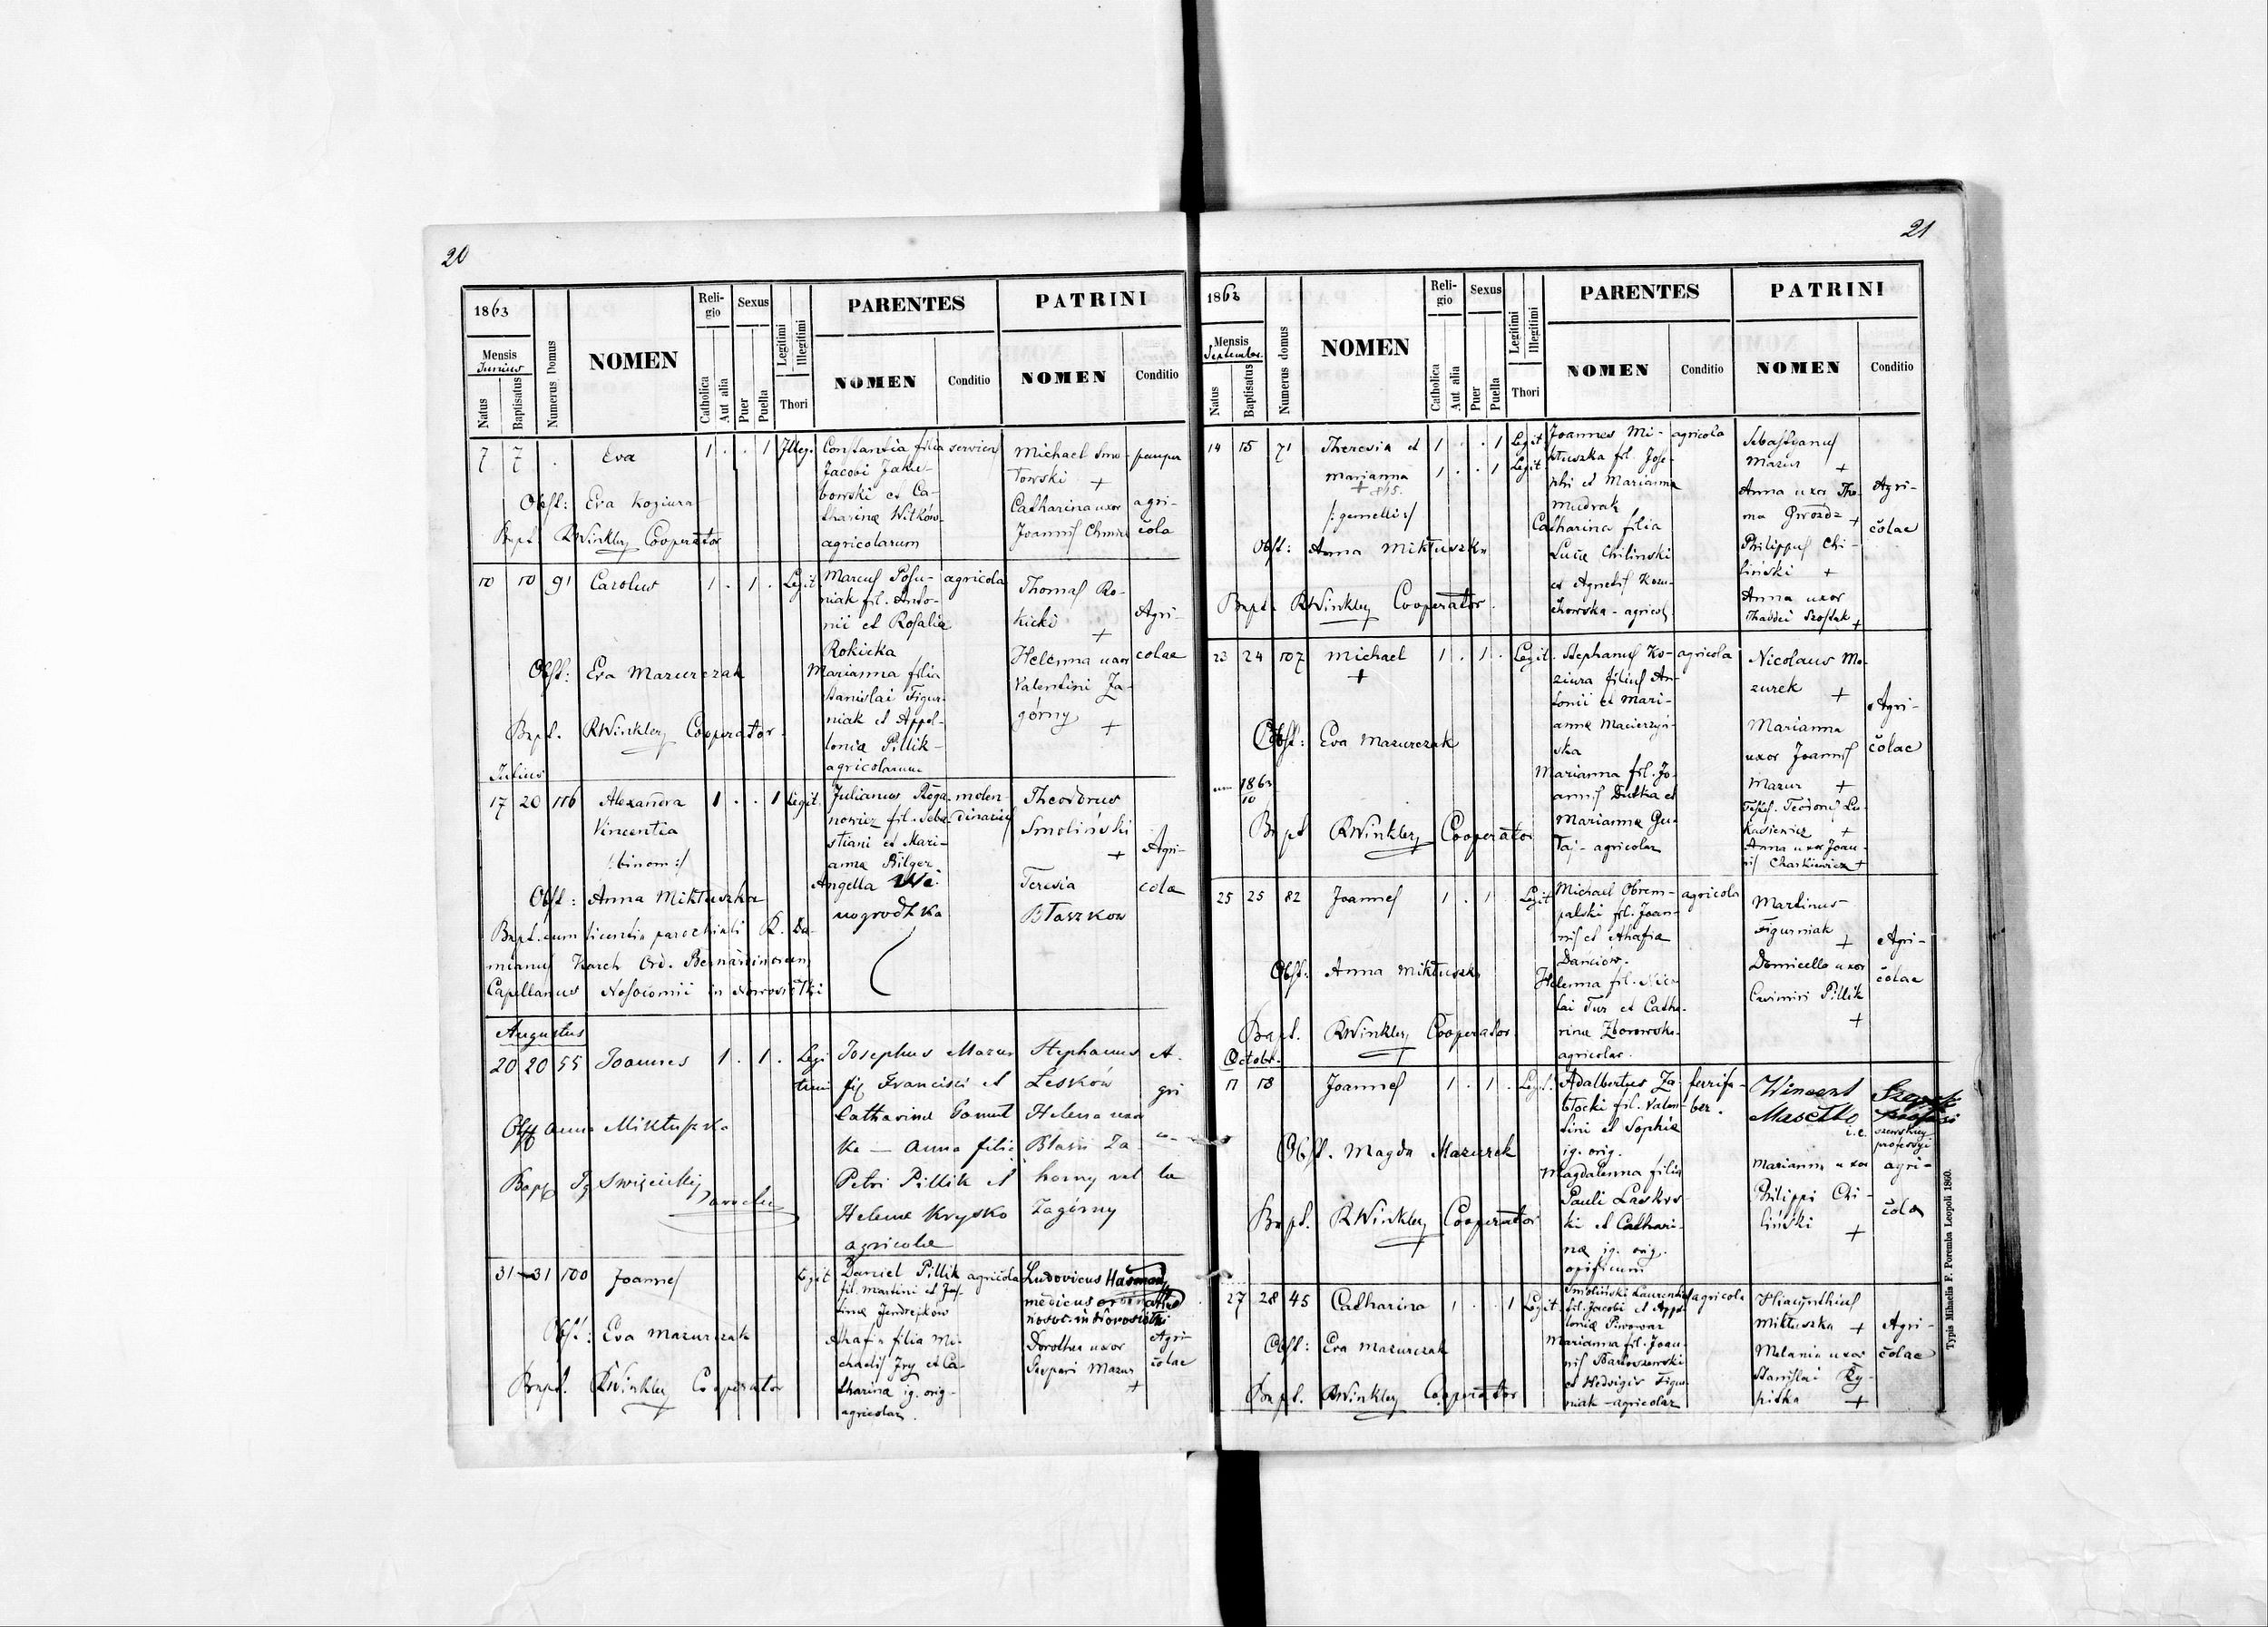 20
1863
Mensis
Junius
Natus
Baptisatus
Numerus Domus
NOMEN
Reli-
gio
Catholica
Aut alia
Sexus
Puer
Puella
Legitimi
Illegitimi
Thori
PARENTES
NOMEN
Conditio
PATRINI
NOMEN
Conditio
7 7 . Eva 1 . . 1 Illeg.
Obst: Eva Koziura
Bapt. RWinkler Cooperator
Constantia filia serviens
Jacobi Jaku-
bowski et Ca-
tharinæ Witków-
agricolarum
Michael Smo-
+
Catharina uxor
Joannis
pauper
agri-
cola
10 10 91 Carolus 1 . 1 . Legit.
Obst: Eva Mazurczak
Bapt. RWinkler Cooperator
Marcus Posu- agricola
niak fil. Anto-
nii et Rosalia
Rokicka
Marianna filia
Stanislai Figur-
niak et Appol-
lonia Pillik-
agricolarum
Thomas Ro-
kicki
+
Helenna uxor
Valentini Za-
górny
+
Agri-
colae
Julius
17 20 116 Alexandra 1 . . 1 Legit.
Vincentia
/:binom:/
Obst: Anna Miktuszka
Bapt. cum licentia parochiali R. Da-
mianus Karch Ord. Bernardinorum
Capellanus Nosocomii in
Julianus Roga- molen-
nowicz fil. Seba- dinarius
stiani et Mari-
anna Bilger
Angella Wi-
nogrodzka
Theodorus
Smoliński
+
Teresia
Błaszkow
Agri-
cola
Augustus
20 20 55 Joannes 1 . 1 . Legi
timi
Obst Anna Miktuszka
Bapt Ig Swięcicki
Josephus Mazur
fil Francisci et
Catharina
ka — Anna filia
Petri Pillik et
Helena Krysko
agricolae
Stephanus
Lesków
Helena uxor
Blasii Za
horny vel
Zagórny
A-
gri
co-
la
31 31 100 Joannes Legit
Obst: Eva Mazurczak
Bapt. RWinkler Cooperator
Daniel Pillik agricola
fil. Martini et Jus-
tina Jendrejków
Ahafia filia Mi-
chaelis Jry et Ca-
tharina ig. orig-
agricolar.
Ludovicus
medicus
Dorothea uxor
Gaspari Mazur
+
Agri-
colae
21
1863
Mensis
September
Natus
Baptisatus
Numerus domus
NOMEN
Reli-
gio
Catholica
Aut alia
Sexus
Puer
Puella
Legitimi
Illegitimi
Thori
PARENTES
NOMEN
Conditio
PATRINI
NOMEN
Conditio
14 15 71 Theresia et 1 . . 1 Legit
Marianna 1 . . 1 Legit
+
/:gemelli:/
Obst: Anna Miktuszka
Bapt. RWinkler Cooperator
Joannes Mi- agricola
ktuszka fil. Jose-
phi et Marianna
Mudrak
Catharina filia
Lucæ Chilinski
et Agnetis Kom-
Sebastyanus
Mazur +
Anna uxor Tho-
ma Gwozdz +
Philippus Chi-
liński +
Anna uxor
Thaddei Szostak +
Agri-
colae
23 24 107 Michael 1 . 1 . Legit.
+
Obst: Eva Mazurczak
1863
10
Bapt RWinkler Cooperator
Stephanus Ko- agricola
ziura filius An-
tonii et Mari-
anna Macierzyń-
ska
Marianna fil. Jo-
annis Dutka et
Marianna Gu-
- agricolar
Nicolaus Ma-
zurek +
Marianna
uxor Joannis
Mazur +
Lu-
kasiewicz +
Anna uxor Joan-
nis Charkiewicz +
Agri-
colae
25 25 82 Joannes 1 . 1 . Legit
Obst: Anna Miktuszka
Bapt. RWinkler Cooperator
Michael Obrem- agricola
palski fil. Joan-
nis et Ahafia
Danciów.
Helenna fil. Nico-
lai Tur et Catha-
rina Zborowska-
agricolar.
Martinus
Figurniak
+
Domicella uxor
Casimiri Pillik
+
Agri-
colae
Octobr.
17 18 Joannes 1 . 1 . Legit.
Obst. Magda Mazurek
Bapt. RWinkler Cooperator
Adalbertus Za- ferrifa-
błocki fil. Valen- ber.
tini et Sophia
ig. orig.
Magdalenna filia
Pauli Laskow-
ki et Cathari-
na ig. orig.
opificum
Wincent
i.e.
Marianna uxor
Philippi Chi-
liński
+
szewskiey
professyi
agri-
cola
27 28 45 Catharina 1 . . 1 Legit
Obst: Eva Mazurczak
Bapt. RWinkler Cooperator
Smoliński Laurentius agricola
fil. Jacobi et Appo-
lonia Piwowar
Marianna fil. Joan-
nis Bartoszewski
et Hedvigis Figur-
niak - agricolar
Hiacynthius
Miktuszka +
Melania uxor
Stanislai Ry-
pitka +
Agri-
colae
Typis Mihaelis F. Poremba Leopoli 1860.